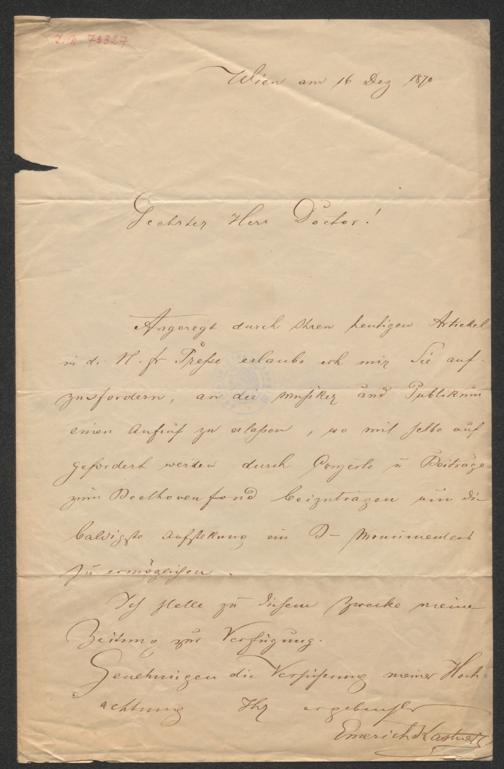 I. N. 73327
Wien am 16 Dez 1870
Geehrter Herr Doctor!
Angeregt durch Ihren heutigen Artickel
in d. N. fr Presse erlaube ich mir Sie auf-
zufordern, an die Musiker und Publikum
einen Aufruf zu erlassen, wo mit selbe auf
gefordert werden durch Conzerte u Beiträge
zum Beethovenfond beizutragen um die
baldigste Aufstellung ein B- Monument
zu ermöglichen.
Ich stelle zu diesem Zwecke meine
Zeitung zur Verfügung.
Genehmigen die Versicherung meiner Hoch
achtung Ihr ergebenster
Emerich Kastner